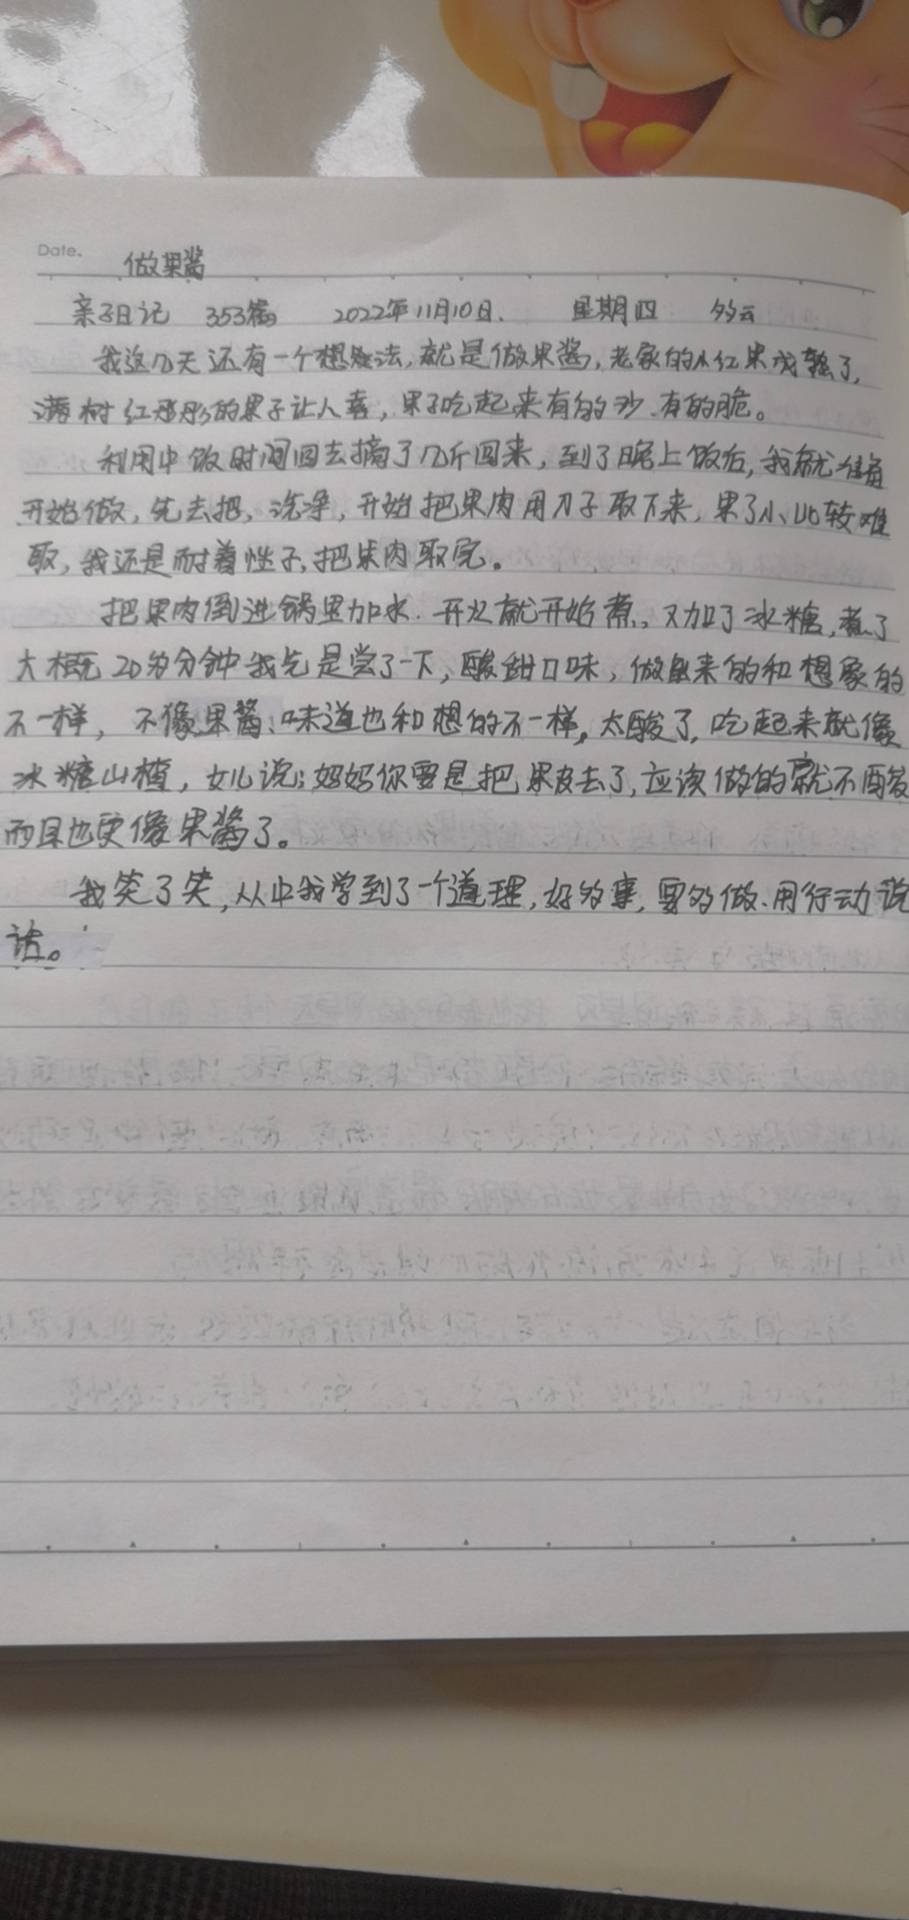 Date.
做果酱
亲子日记 353篇 2022年11月10日. 星期四 多云
我这几天还有一个想法,就是做果酱,老家的小红果成熟了,
满树红彤彤的果子让人喜,果子吃起来有的沙.有的脆。
利用中饭时间回去摘了几斤回来,到了晚上饭后,我就准备
开始做,先去把,洗净,开始把果肉用刀子取下来,果子小、比较难
取,我还是耐着性子,把果肉取完。
把果肉倒进锅里加水.开火就开始煮,又加了冰糖,煮了
大概20多分钟我先是尝了一下,酸甜口味,做出来的和想象的
不一样,不像果酱;味道也和想的不一样,太酸了,吃起来就像
冰糖山楂,女儿说;妈妈你要是把果皮去了,应该做的就不酸
而且也更像果酱了。
我笑了笑,从中我学到了一个道理,好多事,要多做.用行动说
话。